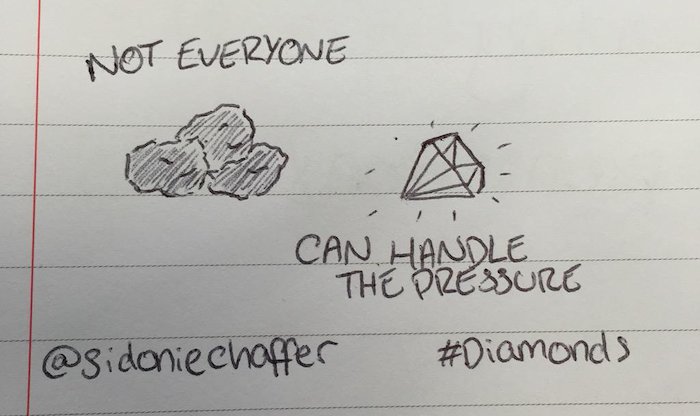 NOT EVERYONE
CAN HANDLE
THE PRESSURE
@sidoniechaffer
#Diamonds